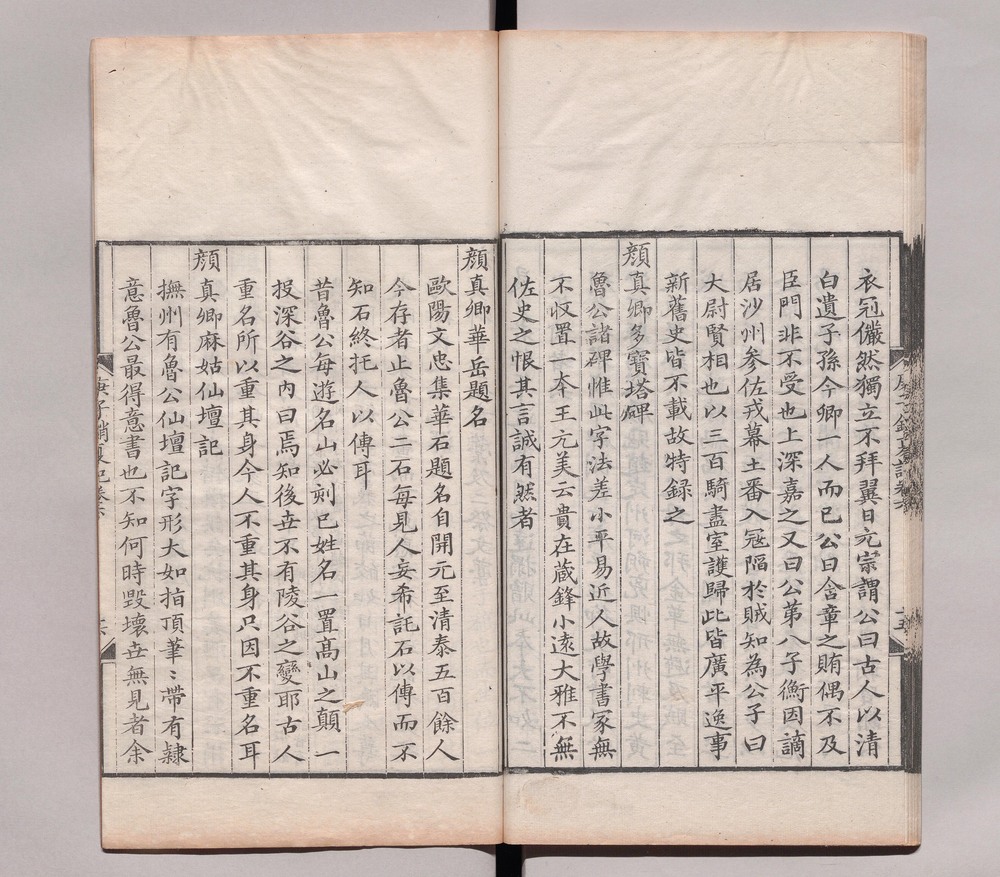 衣冠儼然獨立不拜翼日元宗謂公曰古人以清
白遺子孫今卿一人而已公曰含章之賄偶不及
臣門非不受也上深嘉之又曰公第八子衡因謫
居沙州參佐戎幕土番入冦陷於賊知為公子曰
大尉賢相也以三百騎盡室護歸此皆廣平逸事
新舊史皆不載故特録之
顔真卿多寶塔碑
魯公諸碑惟此字法差小平易近人故學書家無
不收置一本王元美云貴在藏鋒小逺大雅不無
佐史之恨其言誠有然者
顔真卿華岳題名
歐陽文忠集華石題名自開元至清泰五百餘人
今存者止魯公二石每見人妄希託石以傳而不
知石終托人以傳耳
昔魯公每遊名山必刻已姓名一置髙山之顛一
投深谷之内曰焉知後世不有陵谷之變耶古人
重名所以重其身今人不重其身只因不重名耳
顔真卿麻姑仙壇記
撫州有魯公仙壇記字形大如指頂筆〻帶有隷
意魯公最得意書也不知何時毀壞世無見者余
庚子銷夏記卷六
六